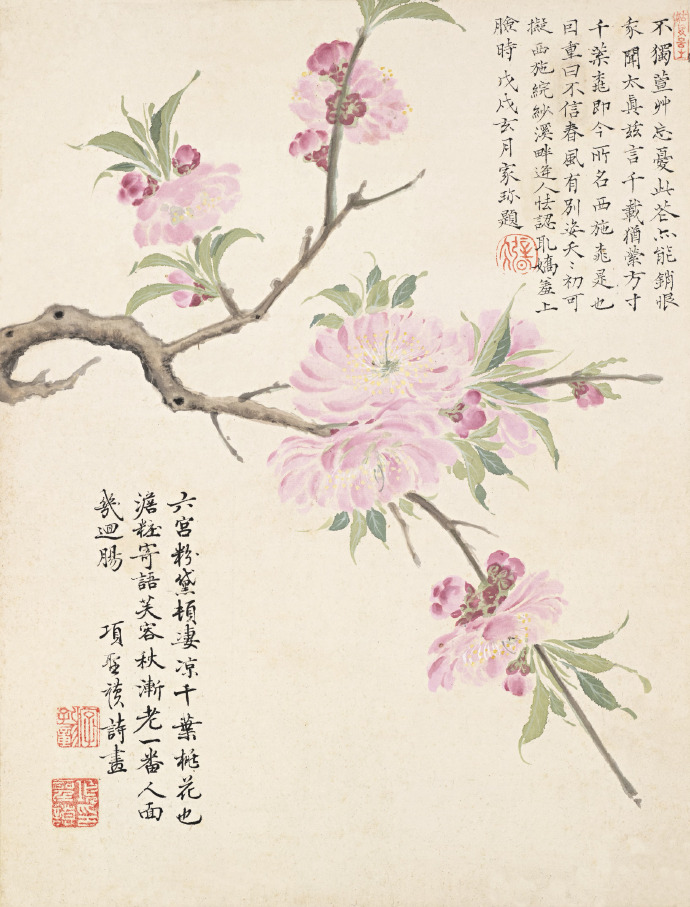 不獨萱艸忘憂此花亦能銷恨
聞太真茲言千載猶縈方寸
千葉桃即今所名西施桃是也
因重曰不信春風有別姿夭〻初可
擬西施綄紗溪畔逢人怯認取嬌羞上
臉時戊戌玄月家珎題
六宮粉黛頓凄凉千葉桃花也
澹粧寄語芙容秋漸老一番人面
幾迴腸 項聖謨詩畫